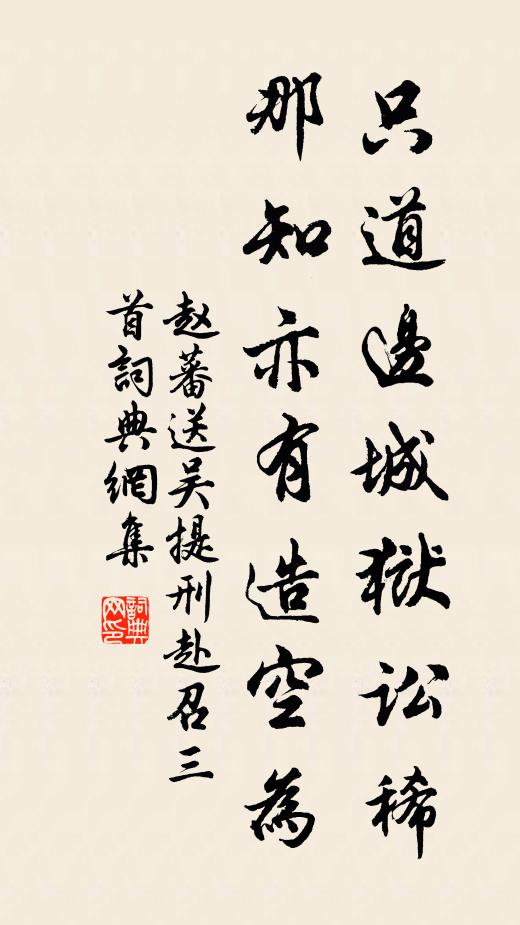 只道邊城獄訟稀
那知亦有造空為
赵蕃送吴提刑赴召三
首詞典網集
詞典
网印